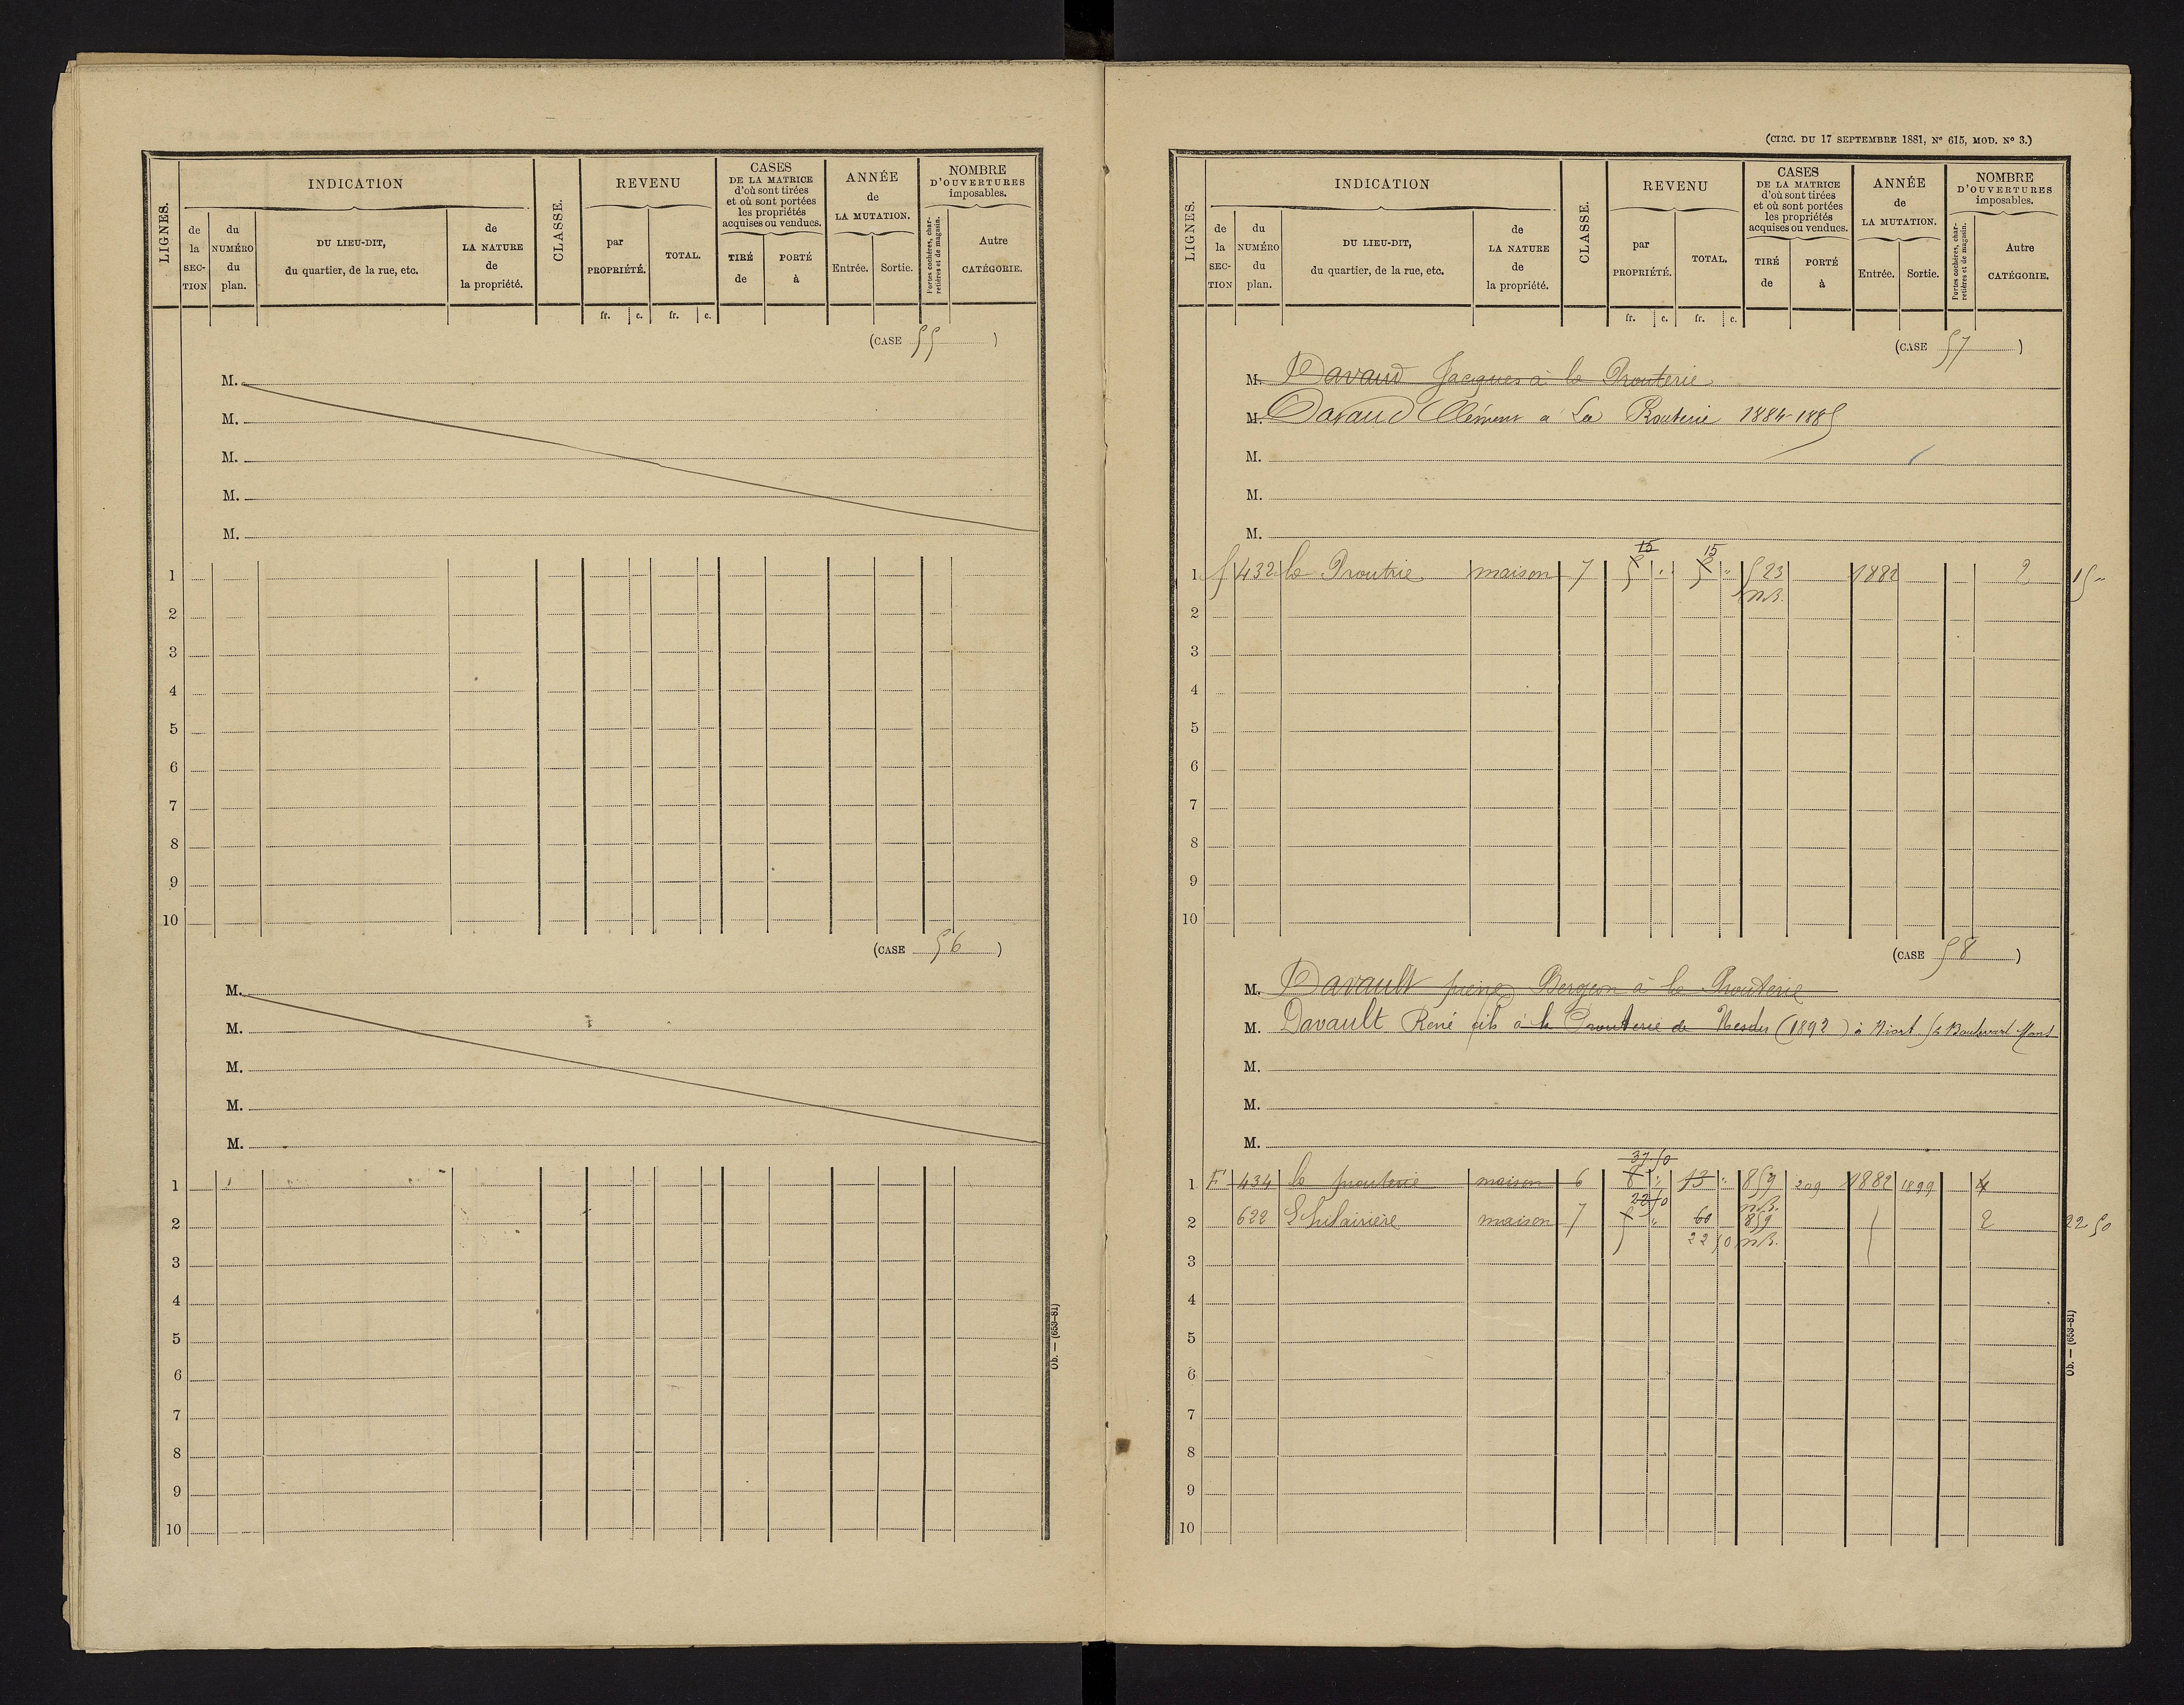 LIGNES.
INDICATION
de la SECTION
du NUMÉRO du plan.
DU LIEU-DIT, du quartier, de la rue, etc.
de LA NATURE de la propriété.
CLASSE.
REVENU
par PROPRIÉTÉ.
TOTAL.
CASES DE LA MATRICE d'où sont tirées et où sont portées les propriétés acquises ou vendues.
TIRÉ de
PORTÉ à
ANNÉE de LA MUTATION.
Entrée.
Sortie.
NOMBRE D'OUVERTURES imposables.
Portes cochères, charretières et de magasin.
Autre CATÉGORIE.
fr. c. fr. c.
(CASE 55)
M.
M.
M.
M.
M.
1
2
3
4
5
6
7
8
9
10
(CASE 56)
M.
M.
M.
M.
M.
1
2
3
4
5
6
7
8
9
10
Ob. — (653-81)
(CIRC. DU 17 SEPTEMBRE 1881, N° 615, MOD. N° 3.)
LIGNES.
INDICATION
de la SECTION
du NUMÉRO du plan.
DU LIEU-DIT, du quartier, de la rue, etc.
de LA NATURE de la propriété.
CLASSE.
REVENU
par PROPRIÉTÉ.
TOTAL.
CASES DE LA MATRICE d'où sont tirées et où sont portées les propriétés acquises ou vendues.
TIRÉ de
PORTÉ à
ANNÉE de LA MUTATION.
Entrée.
Sortie.
NOMBRE D'OUVERTURES imposables.
Portes cochères, charretières et de magasin.
Autre CATÉGORIE.
fr. c. fr. c.
(CASE 57)
M. Davaud Jacques à la Prouterie
M. Davaud Clément à La Prouterie 1884-1885
M.
M.
M.
15 15
1 f 432 la Proutrie maison 7 5 " 5 " 523 1882 2 15 "
m.B.
2
3
4
5
6
7
8
9
10
(CASE 58)
M. Davault Bergeon à la Prouterie
M. Davault René fils à la Prouterie de (1892) à Niort Boulevard
M.
M.
M.
37.50
1 F 434 la prouterie maison 6 8 " 13 " 859 209 1882 1899 4
22 50 m.B.
2 622 maison 7 5 " 60 859 2 22 50
22 50 m.B.
3
4
5
6
7
8
9
10
Ob. — (653-81)